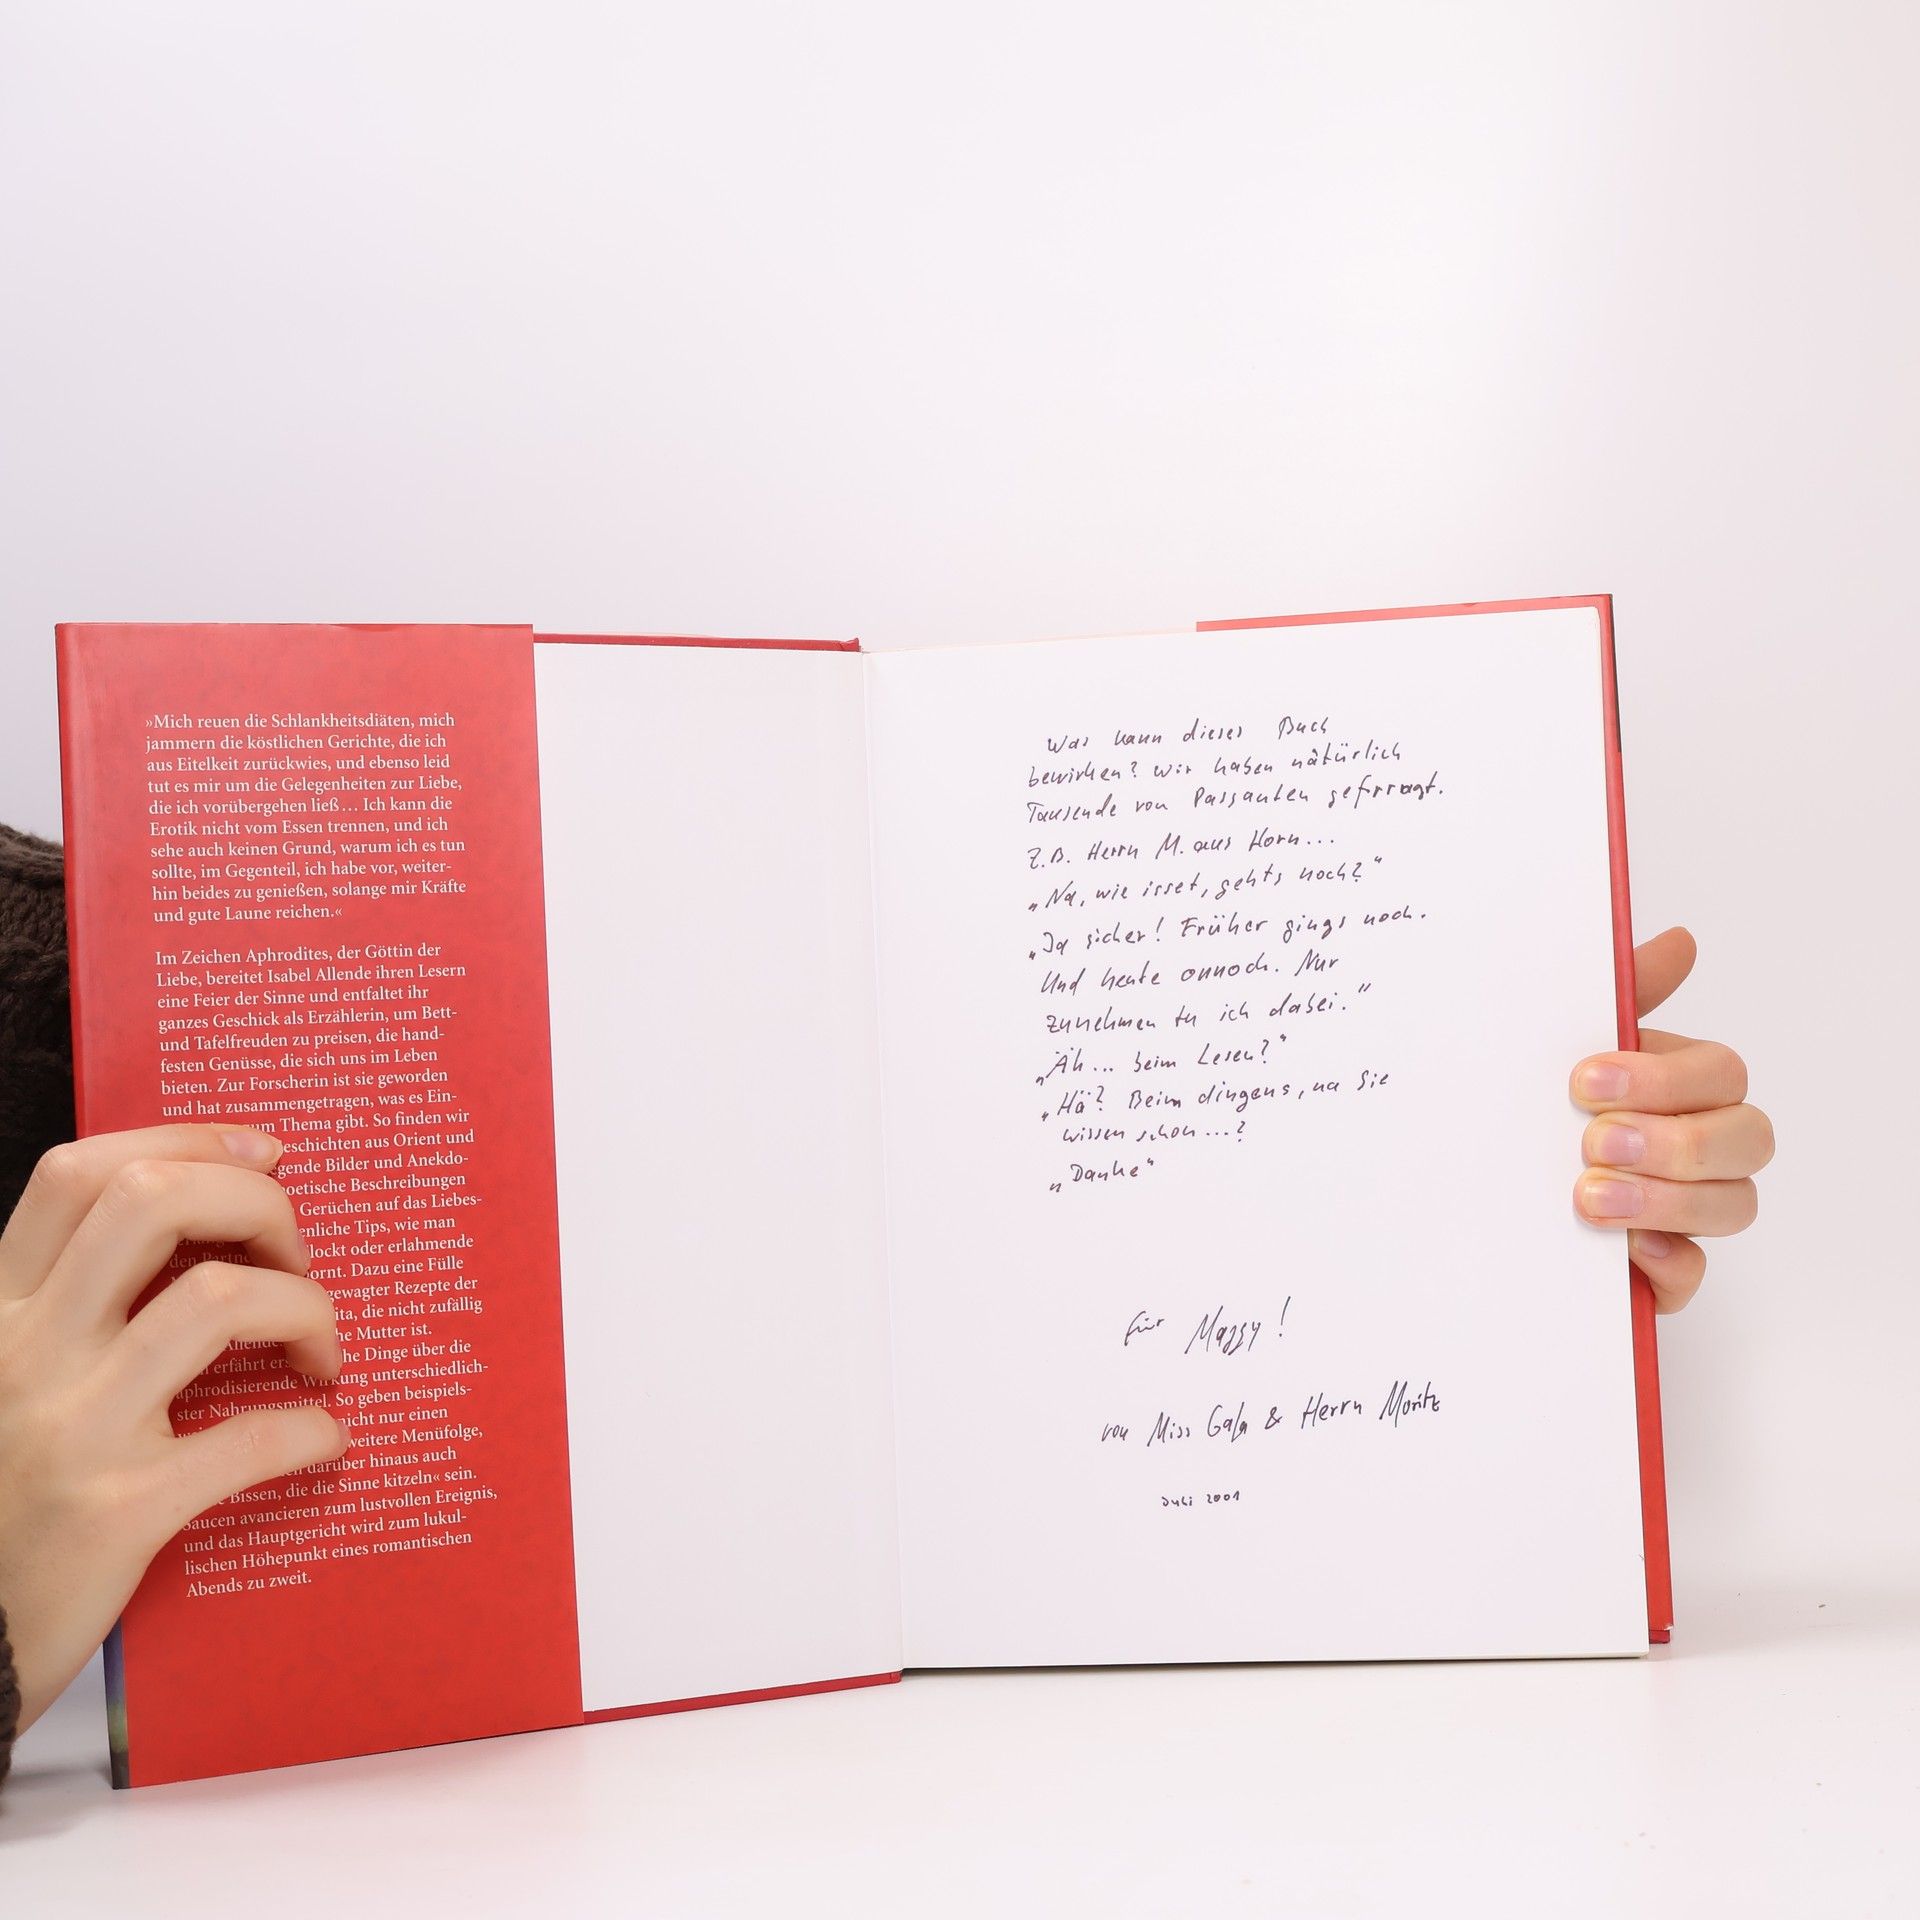 »Mich reuen die Schlankheitsdiäten, mich
jammern die köstlichen Gerichte, die ich
aus Eitelkeit zurückwies, und ebenso leid
tut es mir um die Gelegenheiten zur Liebe,
die ich vorübergehen ließ… Ich kann die
Erotik nicht vom Essen trennen, und ich
sehe auch keinen Grund, warum ich es tun
sollte, im Gegenteil, ich habe vor, weiter-
hin beides zu genießen, solange mir Kräfte
und gute Laune reichen.«
Im Zeichen Aphrodites, der Göttin der
Liebe, bereitet Isabel Allende ihren Lesern
eine Feier der Sinne und entfaltet ihr
ganzes Geschick als Erzählerin, um Bett-
und Tafelfreuden zu preisen, die hand-
festen Genüsse, die sich uns im Leben
bieten. Zur Forscherin ist sie geworden
und hat zusammengetragen, was es Ein-
zum Thema gibt. So finden wir
eschichten aus Orient und
egende Bilder und Anekdo-
poetische Beschreibungen
Gerüchen auf das Liebes-
enliche Tips, wie man
den lockt oder erlahmende
ornt. Dazu eine Fülle
gewagter Rezepte der
ita, die nicht zufällig
he Mutter ist.
erfährt he Dinge über die
aphrodisierende Wirkung unterschiedlich-
ster Nahrungsmittel. So geben beispiels-
nicht nur einen
weitere Menüfolge,
darüber hinaus auch
Bissen, die die Sinne kitzeln« sein.
Saucen avancieren zum lustvollen Ereignis,
und das Hauptgericht wird zum lukul-
lischen Höhepunkt eines romantischen
Abends zu zweit.
Was kann dieses Buch
bewirken? Wir haben natürlich
Tausende von Passanten gefrragt.
Z.B. Herrn M. aus Horn...
„Na, wie isset, gehts noch?"
„Ja sicher! Früher gings noch.
Und heute onnoch. Nur
zunehmen tu ich dabei."
„Äh... beim Lesen?"
„Hä? Beim dingens, na Sie
wissen schon...?
„Danke"
Für Maggy!
von Miss Gala & Herrn Moritz
Juli 2001